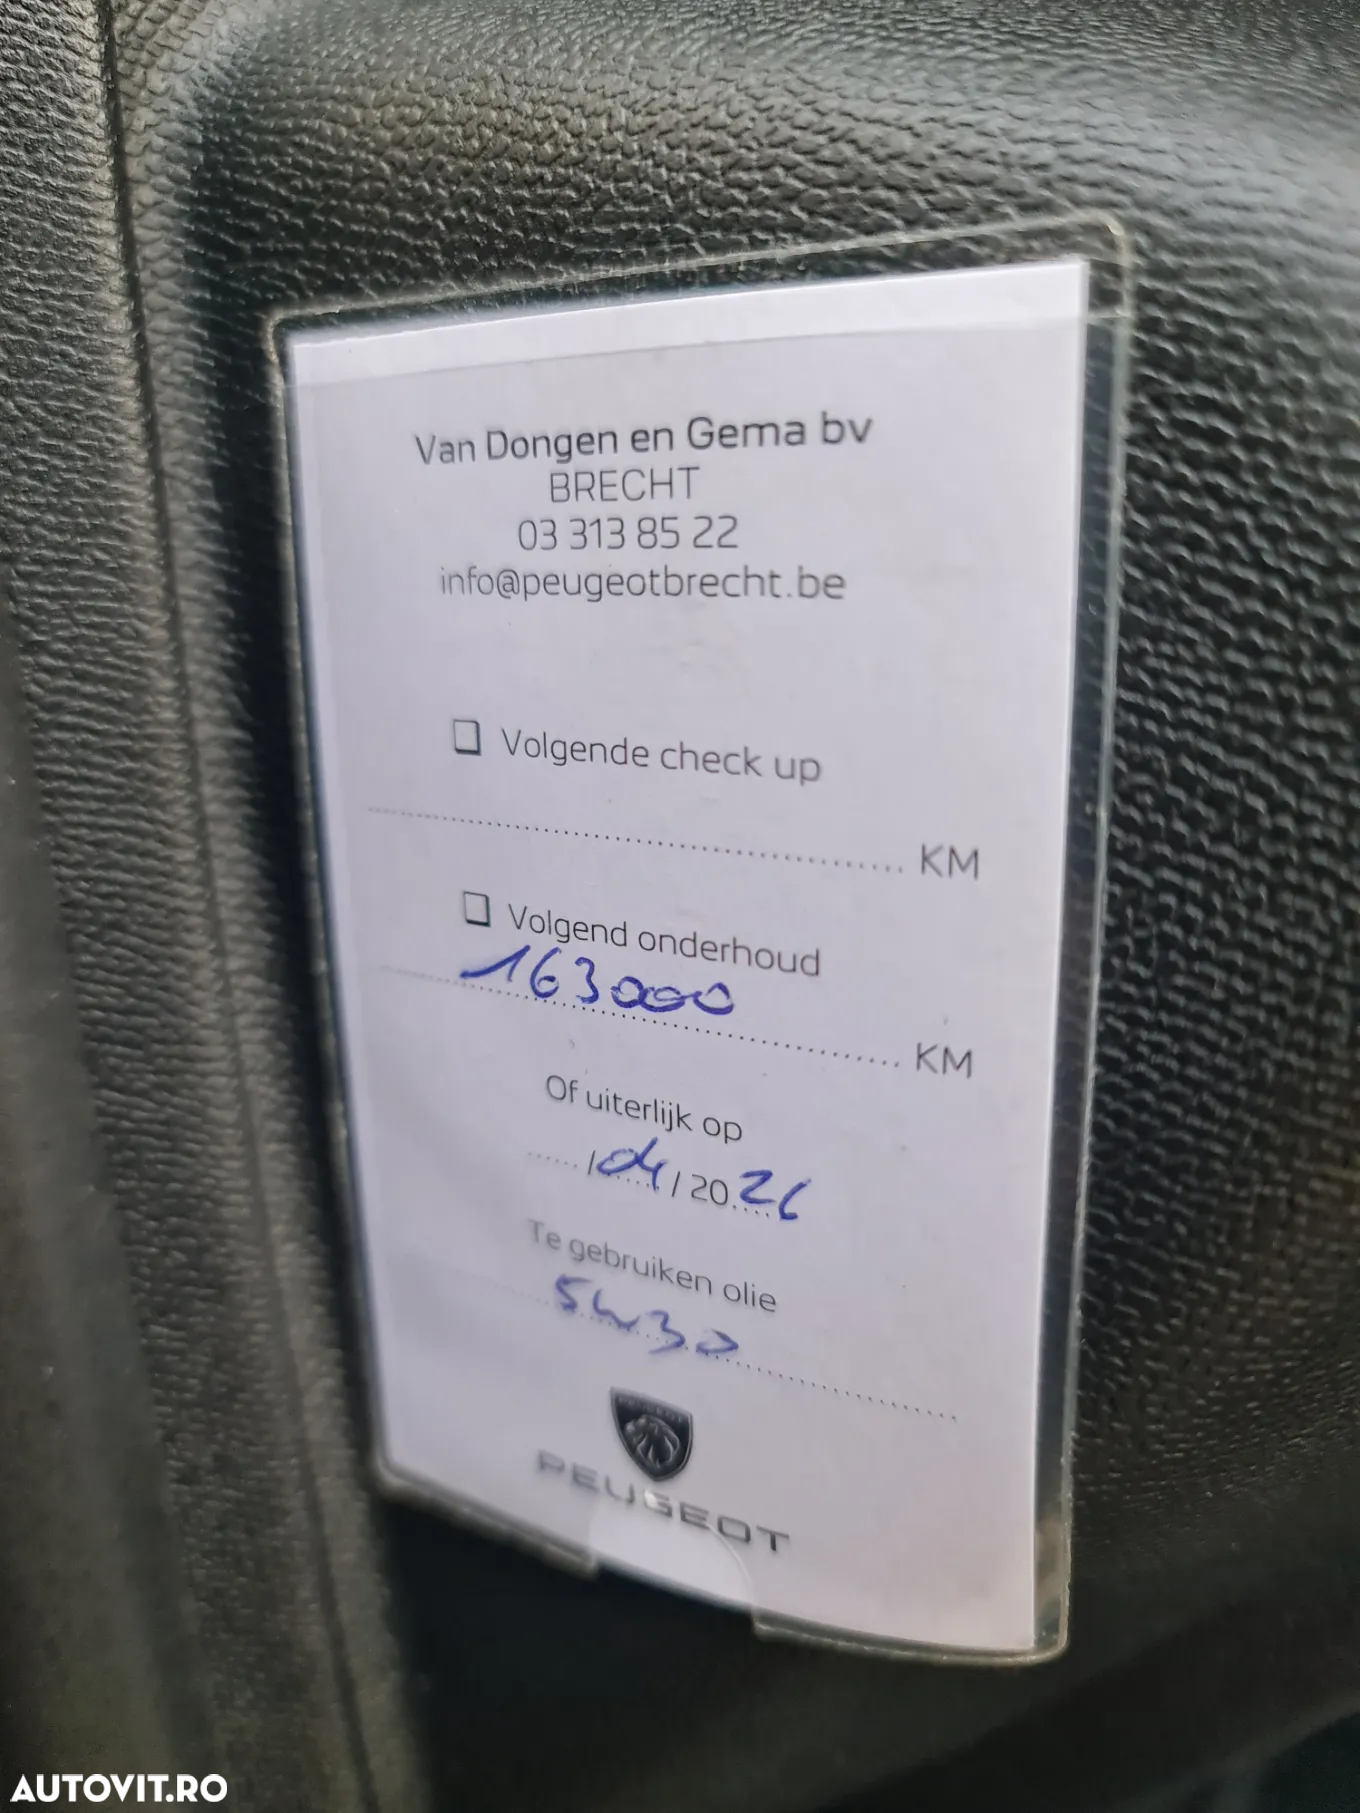 Van Dongen en Gema bv
BRECHT
03 313 85 22
info@peugeotbrecht.be
❑ Volgende check up
.......... KM
❑ Volgend onderhoud
163000
.......... KM
Of uiterlijk op
...... / 04 / 20 26
Te gebruiken olie
5w30
PEUGEOT
AUTOVIT.RO